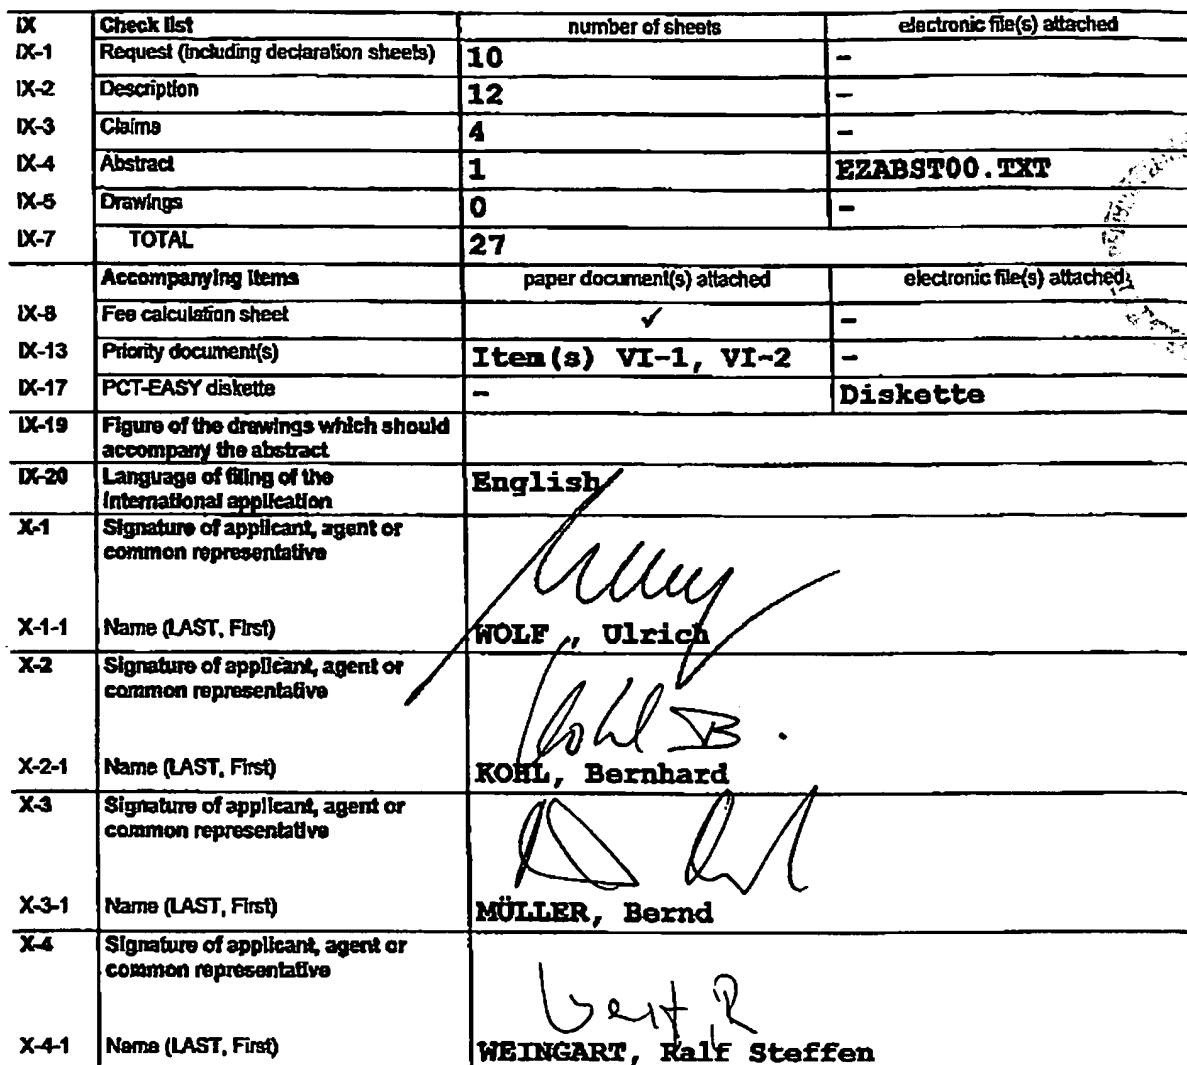 IX Check list number of sheets electronic file(s) attached
IX-1 Request (including declaration sheets) 10 -
IX-2 Description 12 -
IX-3 Claims 4 -
IX-4 Abstract 1 EZABST00.TXT
IX-5 Drawings 0 -
IX-7 TOTAL 27
Accompanying items paper document(s) attached electronic file(s) attached
IX-8 Fee calculation sheet ✓ -
IX-13 Priority document(s) Item(s) VI-1, VI-2 -
IX-17 PCT-EASY diskette - Diskette
IX-19 Figure of the drawings which should
accompany the abstract
IX-20 Language of filing of the English
international application
X-1 Signature of applicant, agent or
common representative
X-1-1 Name (LAST, First) WOLF , Ulrich
X-2 Signature of applicant, agent or
common representative
Kohl B.
X-2-1 Name (LAST, First) KOHL, Bernhard
X-3 Signature of applicant, agent or
common representative
X-3-1 Name (LAST, First) MÜLLER, Bernd
X-4 Signature of applicant, agent or
common representative
X-4-1 Name (LAST, First) WEINGART, Ralf Steffen